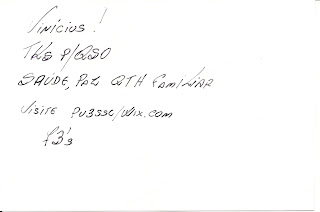 Vinícius!
TKS P/QSO
SAÚDE, PAZ QTH FAMILIAR
VISITE PU3SSC/WIX.COM
73's